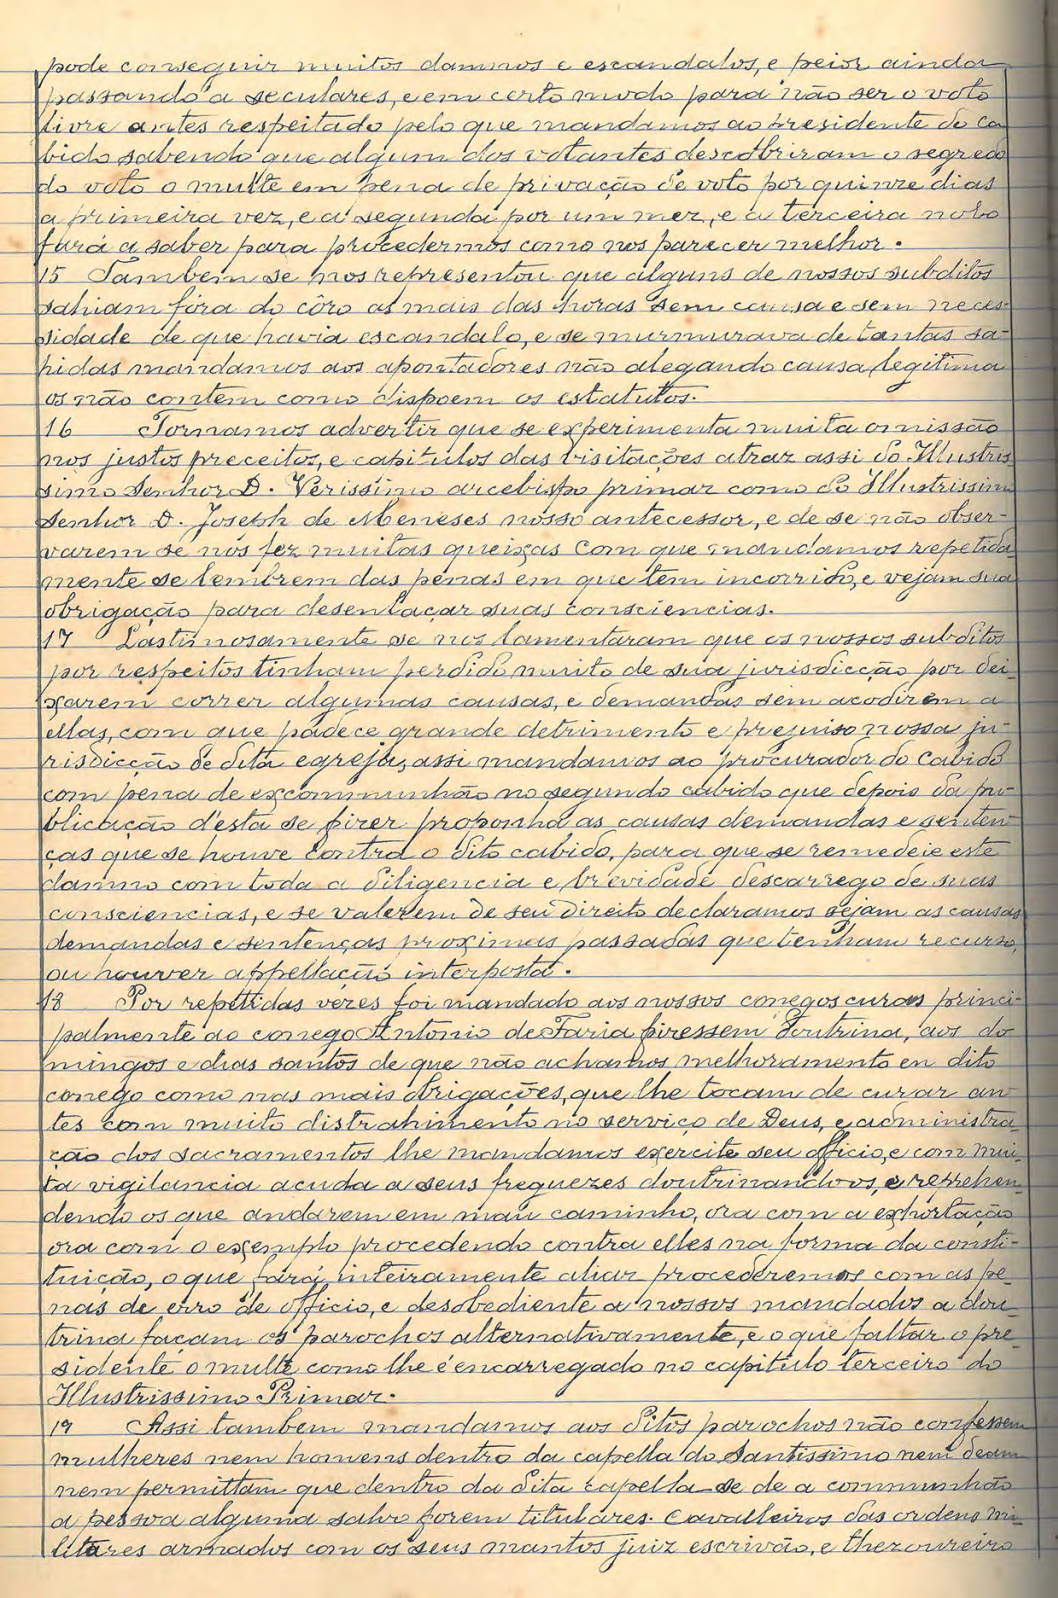 pode conseguir muitos damnos e escandalos, e peior ainda
passando a seculares, e em certo modo para não ser o voto
livre antes respeitado pelo que mandamos ao presidente do ca
bido sabendo que algum dos votantes descobriram o segredo
do voto o multe em pena de privação de voto por quinze dias
a primeira vez, e a segunda por um mez, e a terceira nolo
fará a saber para procedermos como nos parecer melhor.
15 Tambem se nos representou que alguns de nossos subditos
sahiam fóra do côro as mais das horas sem causa e sem neces-
sidade de que havia escandalo, e se murmurava de tantas sa-
hidas mandamos aos apontadores não alegando causa legitima
os não contem como dispoem os estatutos.
16 Tornamos advertir que se experimenta muita omissão
nos justos preceitos, e capitulos das visitações atraz assi do Illustris
simo Senhor D. Verissimo arcebispo primaz como do Illustrissimo
Senhor D. Joseph de Meneses nosso antecessor, e de se não obser-
varem se nos fez muitas queixas com que mandamos repetida
mente se lembrem das penas em que tem incorrido, e vejam sua
obrigação para desenlaçar suas consciencias.
17 Lastimosamente se nos lamentaram que os nossos subditos
por respeitos tinham perdido muito de sua jurisdicção por dei-
xarem correr algumas causas, e demandas sem acodirem a
ellas, com que padece grande detrimento e prejuiso nossa ju-
risdicção de dita egreja, assi mandamos ao procurador do Cabido
com pena de excommunhão no segundo cabido que depois da pu-
blicação d'esta se fizer proponha as causas demandas e senten
ças que se houve contra o dito cabido, para que se remedeie este
damno com toda a diligencia e brevidade, descarrego de suas
consciencias, e se valerem de seu direito declaramos sejam as causas
demandas e sentenças proximas passadas que tenham recurso,
ou houver appellação interposta.
18 Por repetidas vezes foi mandado aos nossos conegos curas princi-
palmente ao conego Antonio de Faria fizessem doutrina, aos do
mingos e dias santos de que não achamos melhoramento en dito
conego como nas mais obrigações, que lhe tocam de curar an
tes com muito distrahimento no serviço de Deus, e administra
ção dos sacramentos lhe mandamos exercite seu officio, e com mui-
ta vigilancia acuda a seus freguezes doutrinando os, e reprehen-
dendo os que andarem em mau caminho, ora com a exhortação
ora com o exemplo procedendo contra elles na forma da consti-
tuição, o que fará inteiramente aliaz procederemos com as pe-
nas de erro de officio, e desobediente a nossos mandados a dou
trina façam os parochos alternativamente, e o que faltar o pre-
sidente o multe como lhe é encarregado no capitulo terceiro do
Illustrissimo Primaz.
19 Assi tambem mandamos aos ditos parochos não confessem
mulheres nem homens dentro da capella do Santissimo nem deam
nem permittam que dentro da dita capella se de a communhão
a pessoa alguma salvo forem titulares. Cavalleiros das ordens mi-
litares armados com os seus mantos juiz escrivão, e thezoureiro